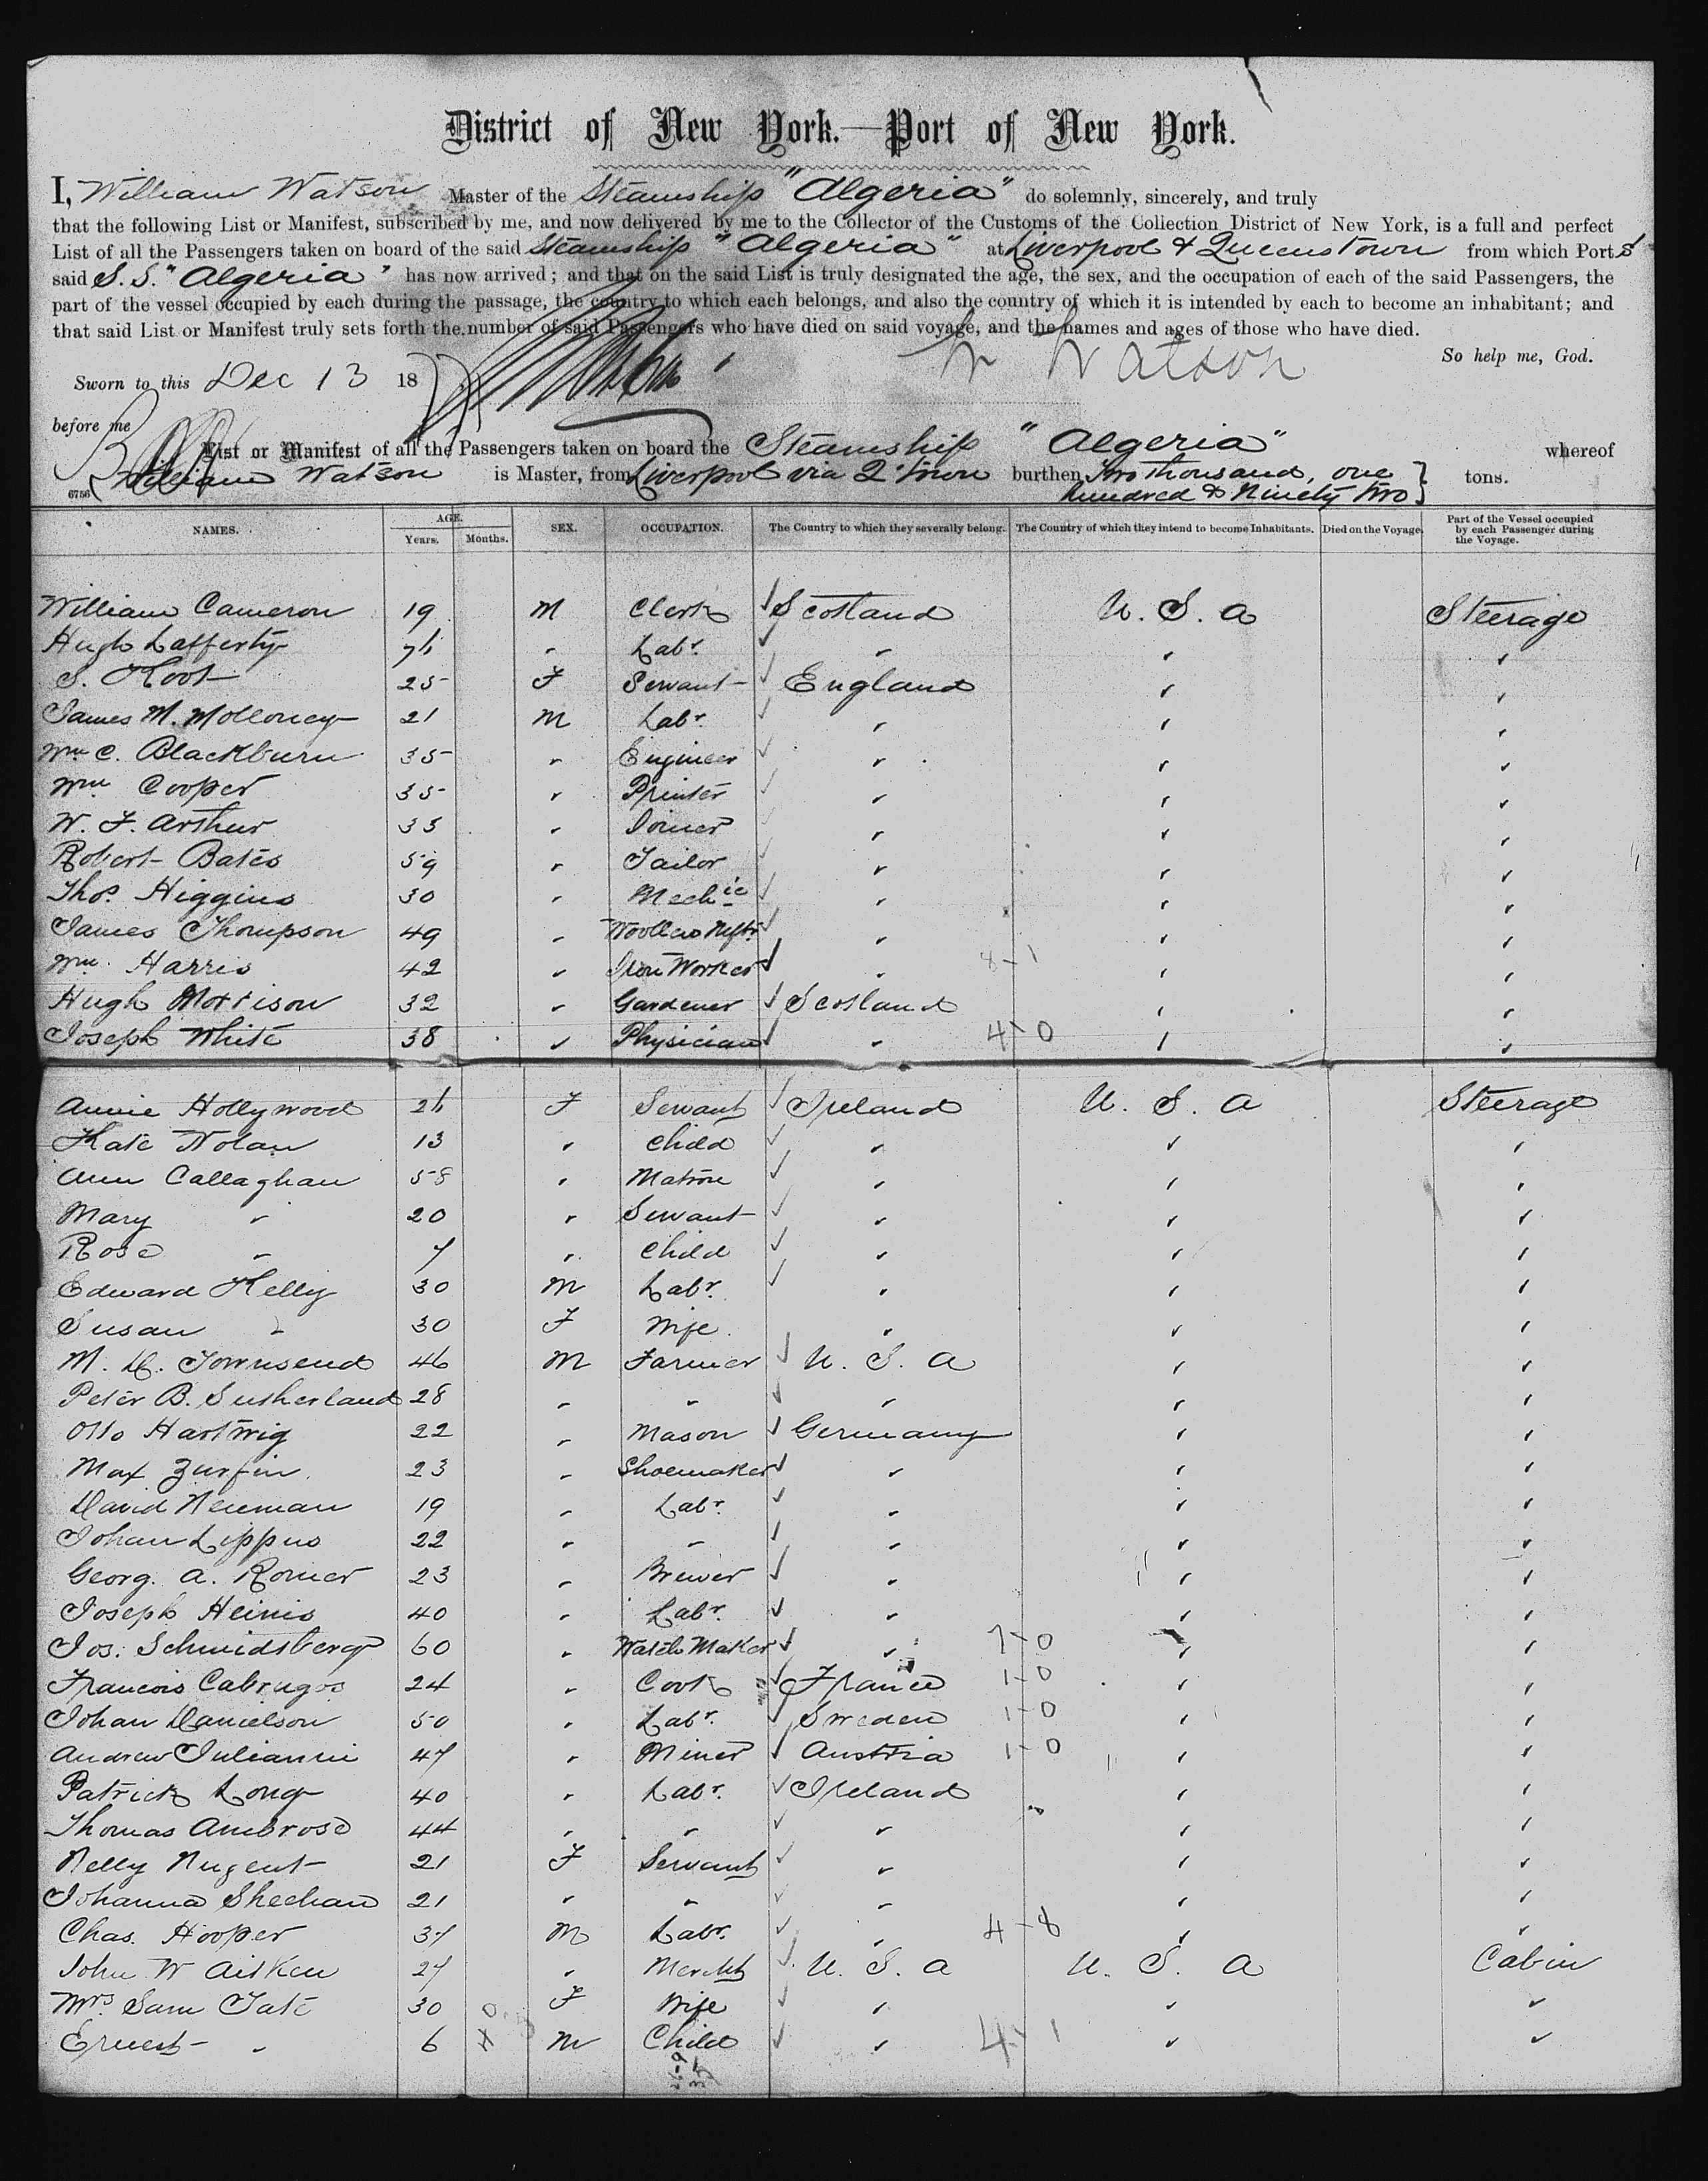 District of New York.—Port of New York.
I, William Watson Master of the Steamship "Algeria" do solemnly, sincerely, and truly
that the following List or Manifest, subscribed by me, and now delivered by me to the Collector of the Customs of the Collection District of New York, is a full and perfect
List of all the Passengers taken on board of the said Steamship "Algeria" at Liverpool & Queenstown from which Port s
said S.S. "Algeria" has now arrived; and that on the said List is truly designated the age, the sex, and the occupation of each of the said Passengers, the
part of the vessel occupied by each during the passage, the country to which each belongs, and also the country of which it is intended by each to become an inhabitant; and
that said List or Manifest truly sets forth the number of said Passengers who have died on said voyage, and the names and ages of those who have died.
So help me, God.
W Watson
Sworn to this Dec 13 18
before me
List or Manifest of all the Passengers taken on board the Steamship "Algeria" whereof
William Watson is Master, from Liverpool via Q'town burthen Two thousand, one hundred & Ninety two } tons.
6756
NAMES. AGE. Years. Months. SEX. OCCUPATION. The Country to which they severally belong. The Country of which they intend to become Inhabitants. Died on the Voyage. Part of the Vessel occupied by each Passenger during the Voyage.
William Cameron 19 M Clerk Scotland U. S. A Steerage
Hugh Lafferty Labr. " " "
S. Root 25 F Servant England " "
James M. Molloney 21 M Labr. " " "
Wm C. Blackburn 35 " Engineer " " "
Wm Cooper 35 " Printer " " "
W. F. Arthur 35 " Joiner " " "
Robert Bates 59 " Tailor " " "
Thos. Higgins 30 " Mechic " " "
James Thompson 49 " Woollen Mftr. " " "
Wm. Harris 42 " Iron Worker " 8-1 " "
Hugh Morrison 32 " Gardener Scotland " "
Joseph White 38 " Physician " 4-0 " "
Annie Hollywood 26 F Servant Ireland U. S. A Steerage
Kate Nolan 13 " Child " " "
Ann Callaghan 58 " Matron " " "
Mary " 20 " Servant " " "
Rose " 7 " Child " " "
Edward Kelly 30 M Labr. " " "
Susan " 30 F Wife " " "
M. D. Townsend 46 M Farmer U. S. A " "
Peter B. Sutherland 28 " " " " "
Otto Hartwig 22 " Mason Germany " "
Max Zurfin 23 " Shoemaker " " "
David Neuman 19 " Labr. " " "
Johan Lippus 22 " " " " "
Georg. A. Romer 23 " Brewer " " "
Joseph Heinis 40 " Labr. " " "
Jos. Schmidsberg 60 " Watch Maker " 7-0 " "
Francois 24 " Cook France 1-0 " "
Johan Danielson 50 " Labr. Sweden 1-0 " "
Andrew Julianni 47 " Miner Austria 1-0 " "
Patrick Long 40 " Labr. Ireland " "
Thomas Ambrose 44 " " " " "
Nelly Nugent 21 F Servant " " "
Johanna Sheehan 21 " " " " "
Chas. Hooper 37 M Labr. " 4-8 " "
John W Aitken 27 " Mercht U. S. A U. S. A Cabin
Mrs. Sam Tate 30 F Wife " " "
Ernest " 6 M Child " 4-1 " "